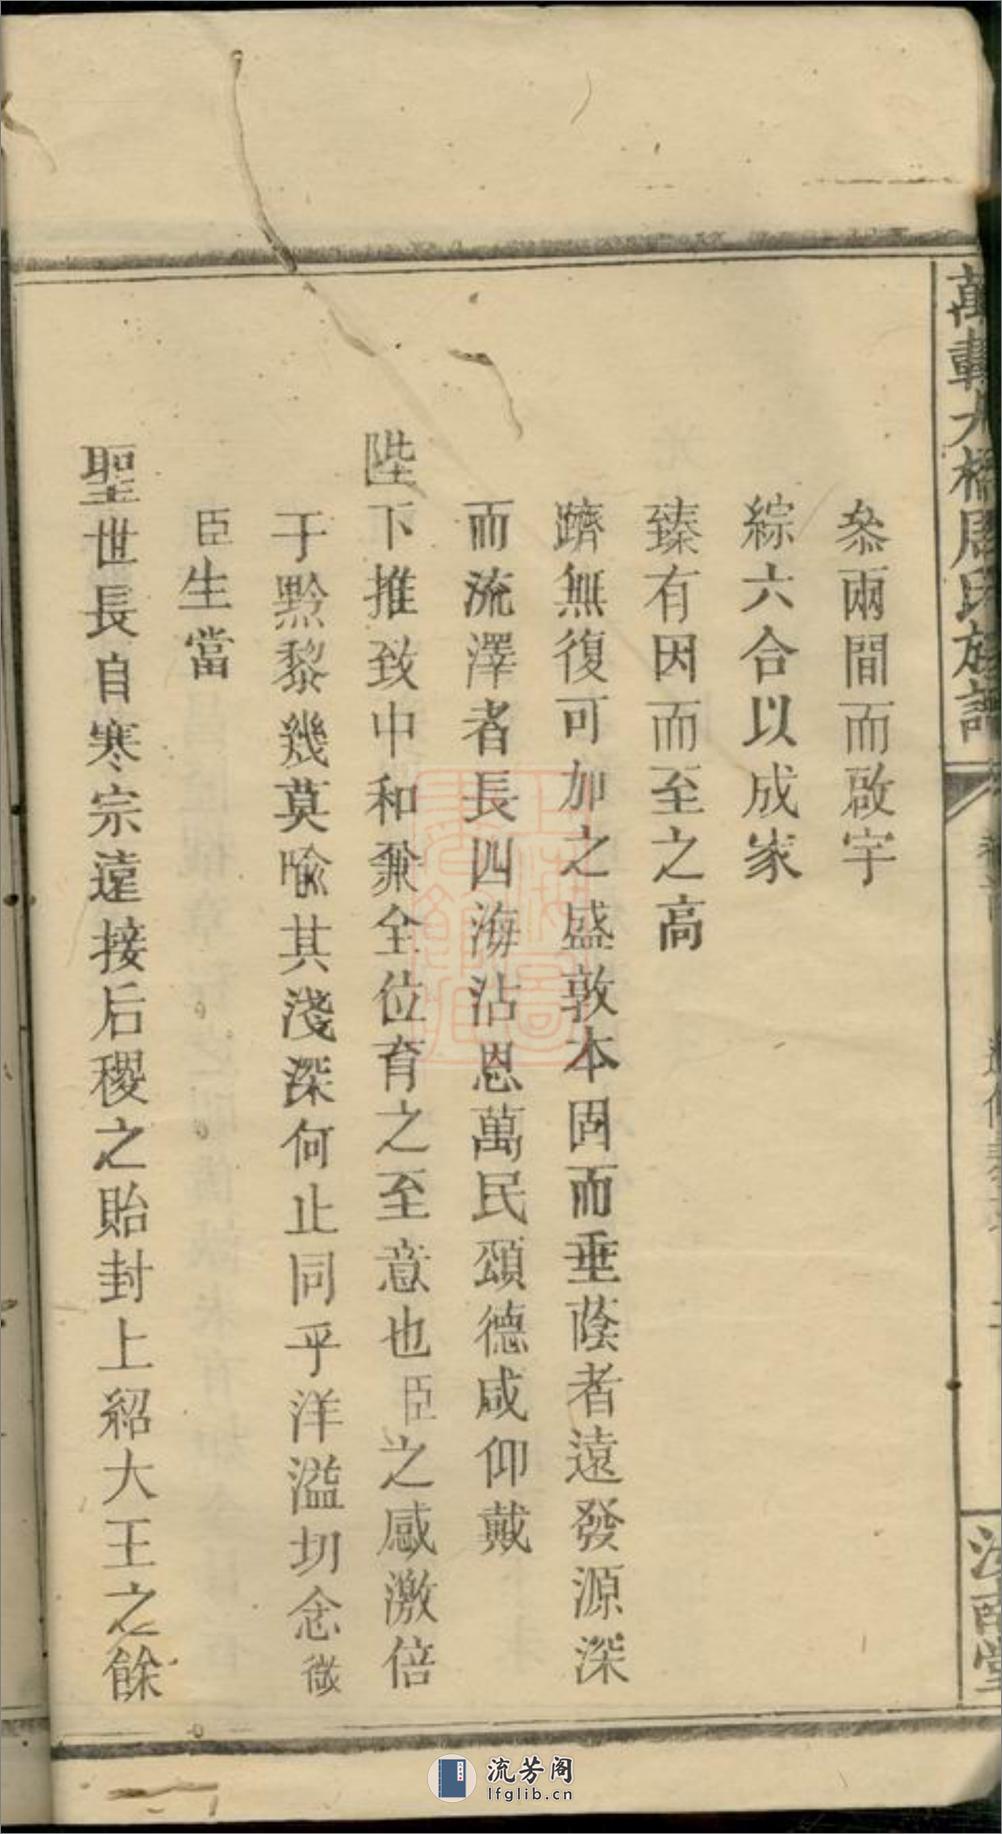 萬載大橋周氏族譜
汝南堂
叅兩間而啟宇
綜六合以成家
臻有因而至之高
躋無復可加之盛敦本固而垂蔭者遠發源深
而流澤者長四海沾恩萬民頌德咸仰戴
陛下推致中和兼全位育之至意也臣之感激倍
于黔黎幾莫喻其淺深何止同乎洋溢切念微
臣生當
聖世長自寒宗遠接后稷之貽封上紹大王之餘
流芳阁
lfglib.cn